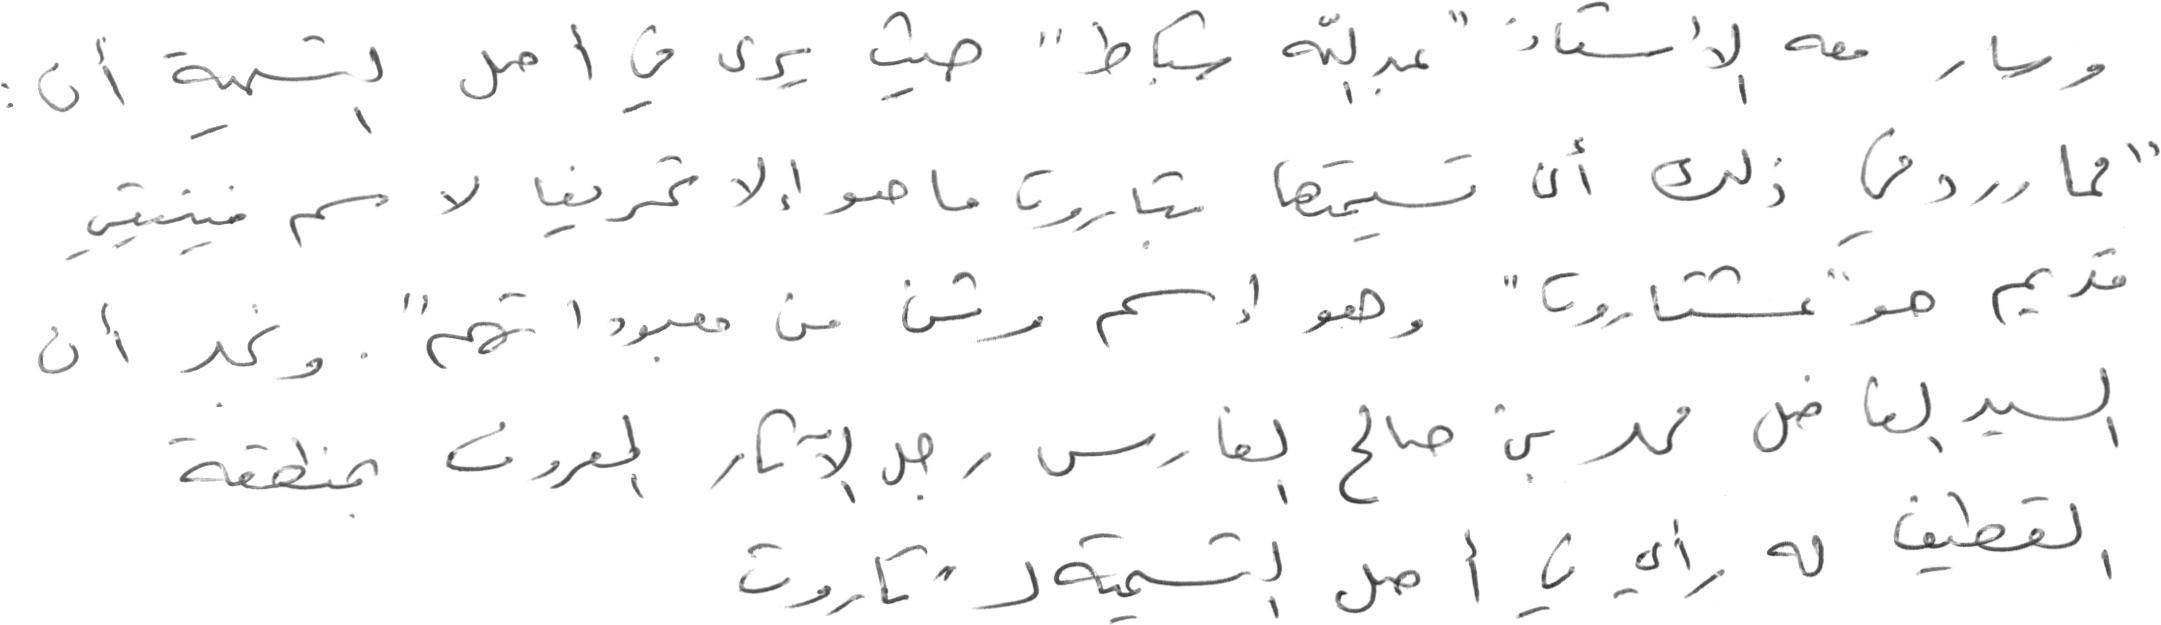 وسار معه الأستاذ "عبدالله شباط" حيث يرى في أصل التسمية أن:
"مما ورد في ذلك أن تسميتها بتاروت ما هو إلا تحريفا لاسم فينيقي
قديم هو "عشتاروت" وهو إسم وثن من معبوداتهم". ونجد أن
السيد الفاضل محمد بن صالح الفارس رجل الآثار المعروف بمنطقة
القطيف له رأي في أصل التسمية لـ "تاروت